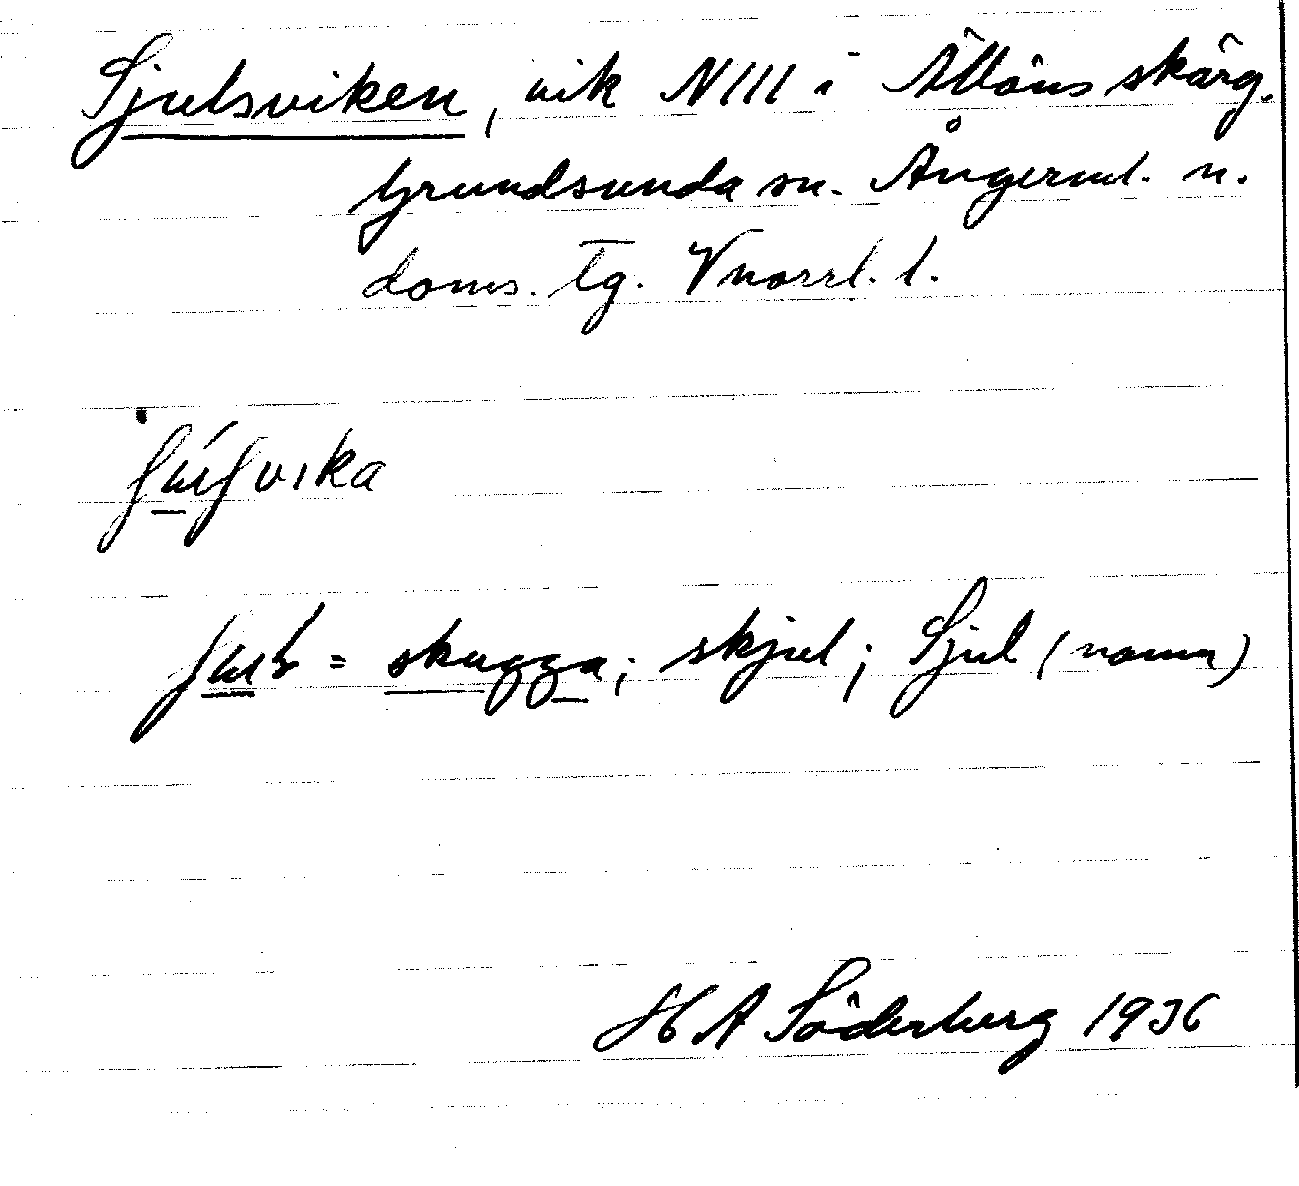 Sjulsviken, vik NIII i Ällöns skärg.
Grundsunda sn. Ångerml. n.
doms. tg. Vnorrl. l.
vika
= skugga; skjul; Sjul (namn)
H A Söderberg 1936